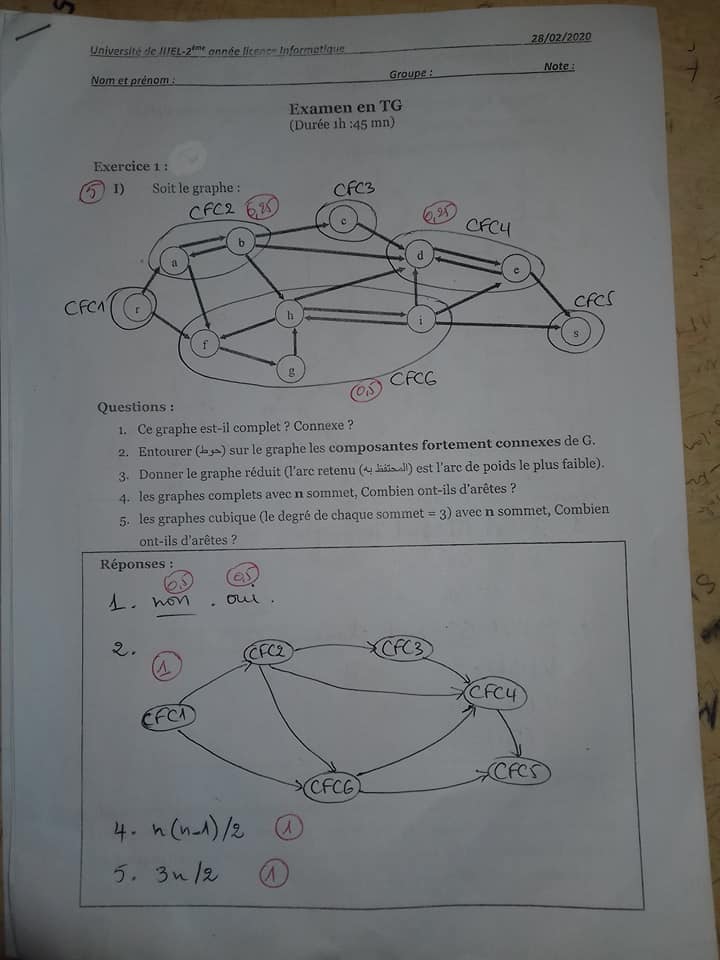 28/02/2020
Université de JIJEL-2ème année licence Informatique
Nom et prénom : Groupe : Note :
Examen en TG
(Durée 1h :45 mn)
Exercice 1 :
5 I) Soit le graphe :
CFC3
CFC2 0,25 c 0,25 CFC4
b
a d e
CFC1 r CFC5
h i s
f
g
0,5 CFC6
Questions :
1. Ce graphe est-il complet ? Connexe ?
2. Entourer (حوط) sur le graphe les composantes fortement connexes de G.
3. Donner le graphe réduit (l'arc retenu (المحتفظ به) est l'arc de poids le plus faible).
4. les graphes complets avec n sommet, Combien ont-ils d'arêtes ?
5. les graphes cubique (le degré de chaque sommet = 3) avec n sommet, Combien
ont-ils d'arêtes ?
Réponses :
0,5 0,5
1. non . oui .
2. CFC2 CFC3
1
CFC4
CFC1
CFC5
CFC6
4. n(n-1)/2 1
5. 3n/2 1